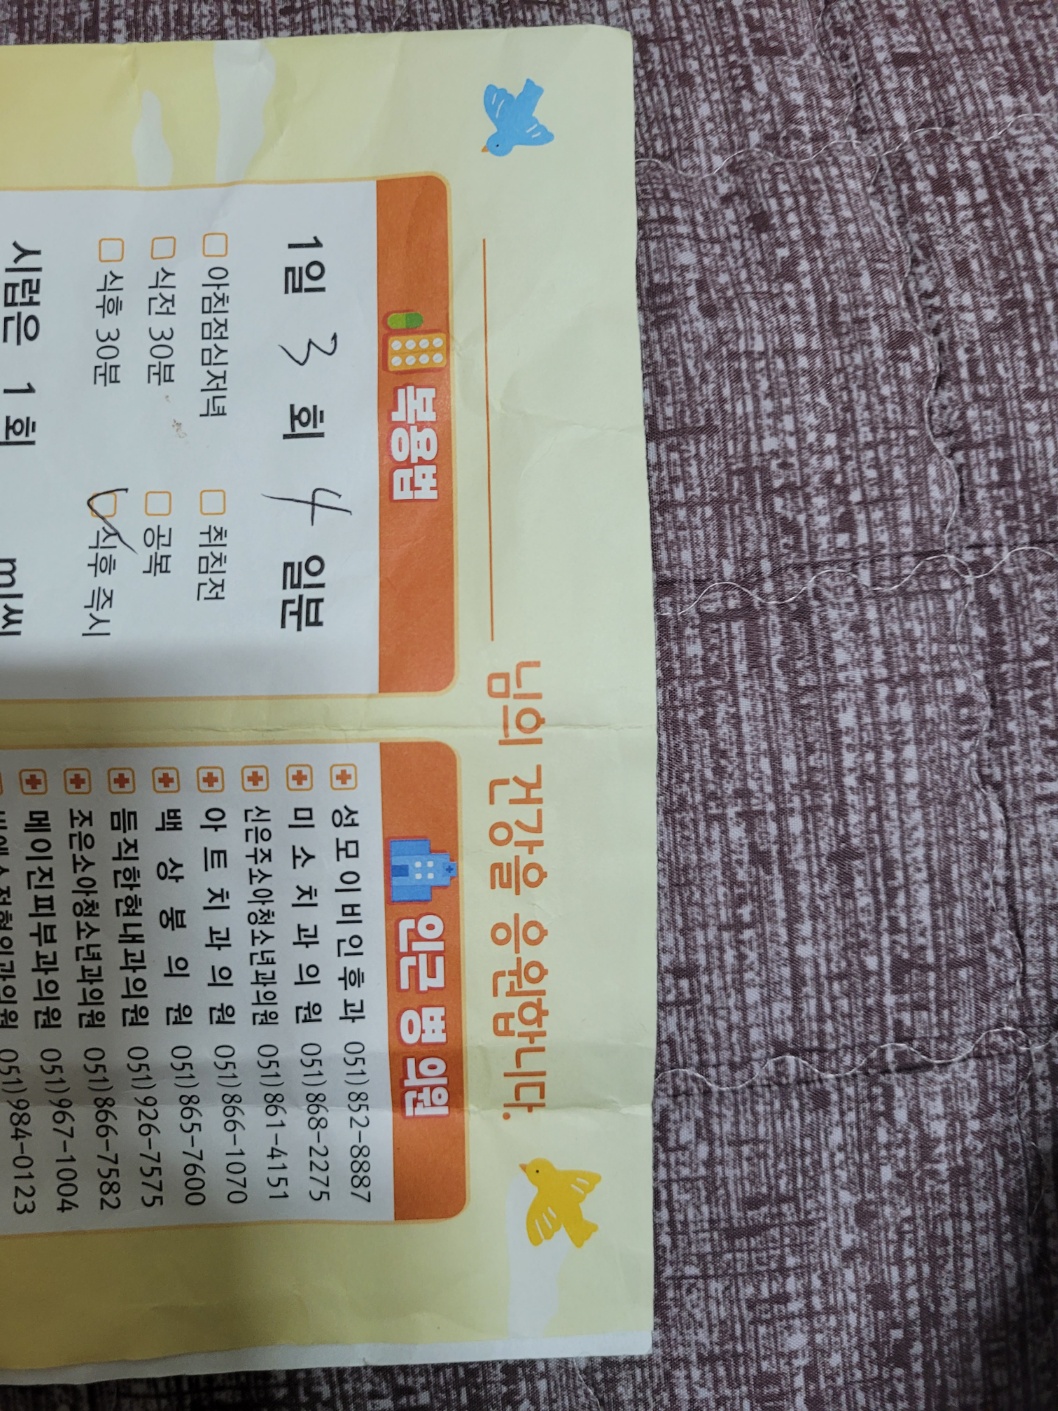 님의 건강을 응원합니다.
복용법
1일 3 회 4 일분
아침점심저녁 취침전
식전 30분 공복
식후 30분 식후 즉시
시럽은 1 회 ml씩
인근 병 의원
성모이비인후과 051)852-8887
미소치과의원 051)868-2275
신은주소아청소년과의원 051)861-4151
아트치과의원 051)866-1070
백상봉의원 051)865-7600
듬직한현내과의원 051)926-7575
조은소아청소년과의원 051)866-7582
메이진피부과의원 051)967-1004
051)984-0123